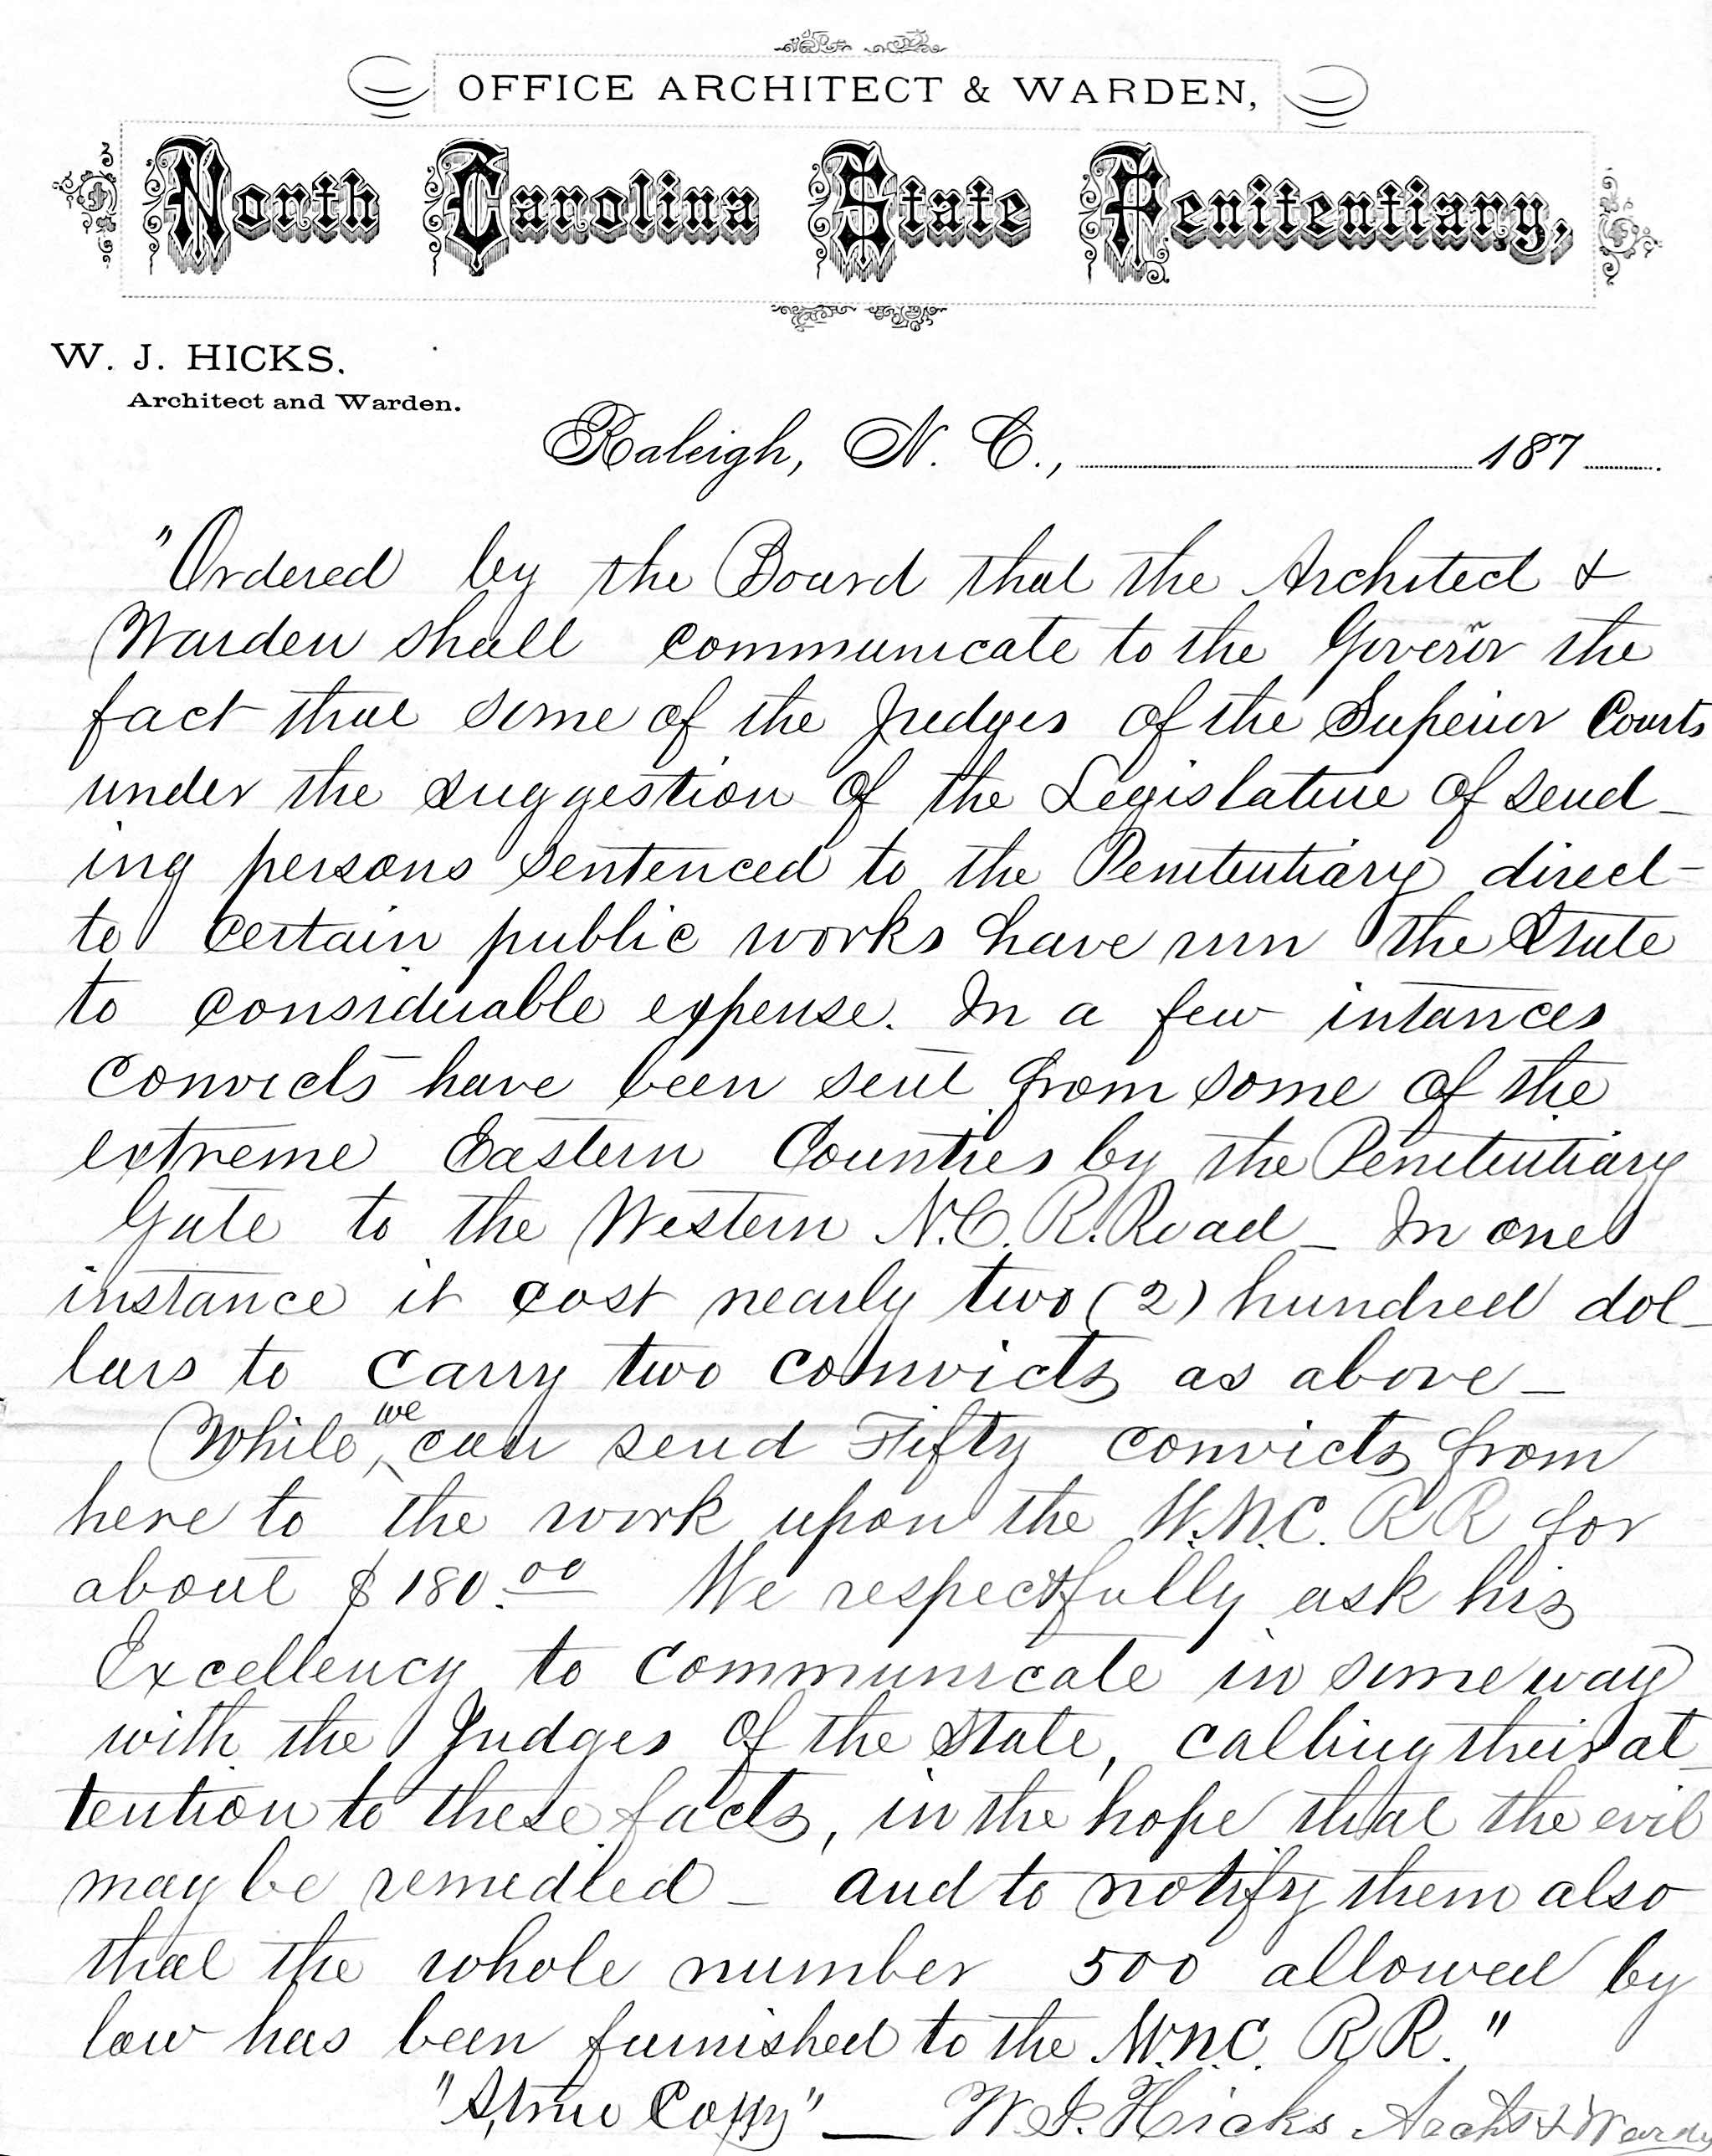 OFFICE ARCHITECT & WARDEN,
North Carolina State Penitentiary,
W. J. HICKS.
Architect and Warden.
Raleigh, N. C., 187
"Ordered by the Board that the Architect &
Warden shall communicate to the Goveror the
fact that some of the Judges of the Superior Courts
under the suggestion of the Legislature of send-
ing persons sentenced to the Penitentiary direct
to certain public works have run the State
to considerable expense. In a few intances
convicts have been sent from some of the
extreme Eastern Counties by the Penitentiary
Gate to the Western N.C. R. Road - In one
instance it cost nearly two (2) hundred dol-
lars to carry two convicts as above -
While we can send Fifty convicts from
here to the work upon the W.N.C. R R for
about $180.00 We respectfully ask his
Excellency to communicate in some way
with the Judges of the State, calling their at-
tention to these facts, in the hope that the evil
may be remedied - and to notify them also
that the whole number 500 allowed by
law has been furnished to the W.N.C. R R."
"A true Copy" — W. J. Hicks Archt & Warden